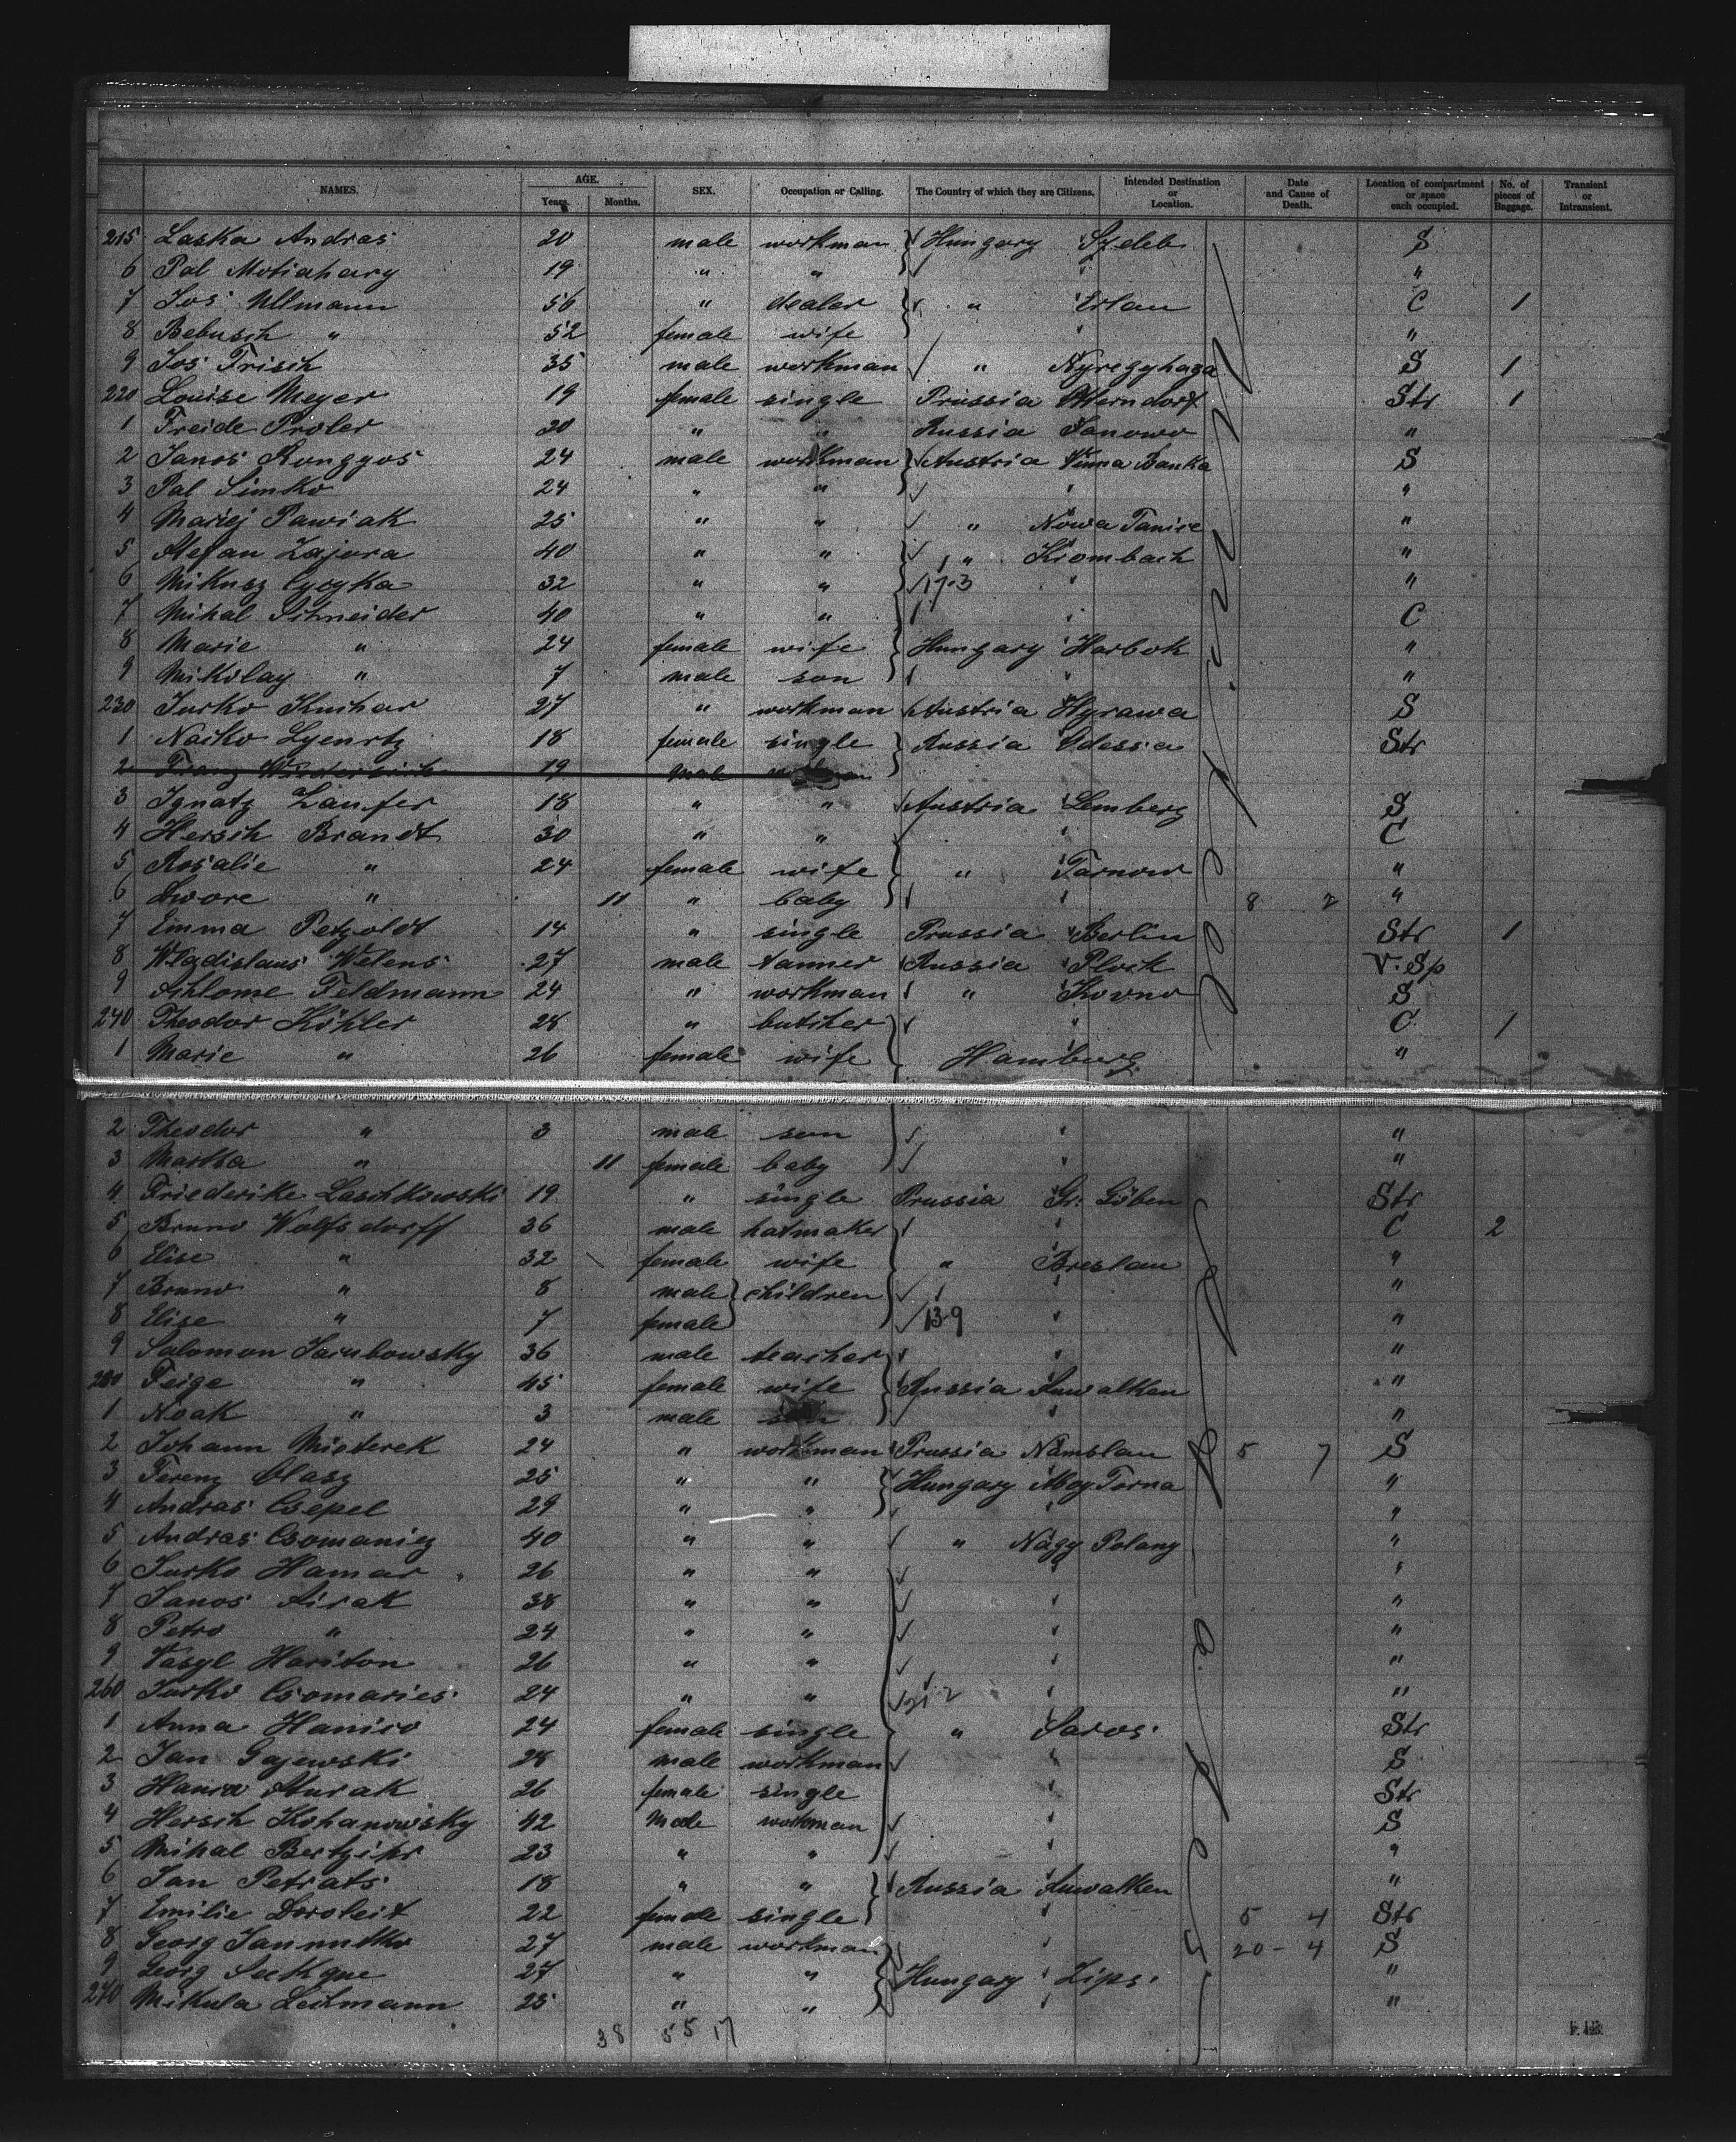 NAMES. AGE. Years. Months. SEX. Occupation or Calling. The Country of which they are Citizens. Intended Destination or Location. Date and Cause of Death. Location of compartment or space each occupied. No. of pieces of Baggage. Transient or Intransient.
215 Laska Andras 20 male workman Hungary Szeleb S
6 Pal Motiahary 19 " " "
7 Jos Ullmann 56 " dealer " Erlau C 1
8 Bebusch " 52 female wife "
9 Jos Frisch 35 male workman " Nyregyhaza S 1
220 Louise Meyer 19 female single Prussia Otterndorf Str 1
1 Freide Proler 20 " " Russia Janowo "
2 Janos Rongyos 24 male workman Austria Vinna Banka S
3 Pal Simko 24 " " "
4 Mariej Pawiak 25 " " " Nowa Tanice "
5 Stefan Zajora 40 " " " Krombach "
6 Mikusz 32 " " 17-3 "
7 Mihal Schneider 40 " " C
8 Marie " 24 female wife Hungary Harbok "
9 Mikolay " 7 male son "
230 Jurko Kuchar 27 " workman Austria Hyrawa S
1 Naiko Lyenrtz 18 female single Russia Odessa Str
2 Franz 19 male
3 Ignatz Laufer 18 " " Austria Lemberg S
4 Hersch Brandt 30 " " C
5 Rosalie " 24 female wife " Tarnow "
6 Dwore " 11 " baby 8 2 "
7 Emma Petzoldt 14 " single Prussia Berlin Str 1
8 Wladislaus Welens 27 male tanner Russia Plock V. Sp
9 Schlome Feldmann 24 " workman " Kovno S
240 Theodor Köhler 28 " butcher C 1
1 Marie " 26 female wife Hamburg "
2 Theodor " 3 male son "
3 Martha " 11 female baby "
4 Friederike Laschkowski 19 " single Prussia Gr. Göben Str
5 Bruno Wolfsdorff 36 male hatmaker C 2
6 Elise " 32 female wife " Breslau "
7 Bruno " 8 male children "
8 Elise " 7 female 13-9 "
9 Salomon Jacubowsky 36 male teacher "
250 Feige " 45 female wife Russia Suwalken "
1 Noak " 3 male son "
2 Johann Mieterek 24 " workman Prussia Namslau 5 7 S
3 Ferenz Olasz 25 " " Hungary Abey Torna "
4 Andras Csepel 29 " " "
5 Andras Csomanicz 40 " " " Nagy Polany "
6 Jurko Hamar 26 " " "
7 Janos Sirak 38 " " "
8 Petro " 24 " " "
9 Vasyl Hariton 26 " " "
260 Jurko Csomaries 24 " " 21-2 "
1 Anna Haniso 24 female single " Saros Str
2 Jan Gajewski 28 male workman S
3 Hanra Sturak 26 female single Str
4 Hersch Kohanowsky 42 Male workman S
5 Mihal 23 " " "
6 Jan Petrats 18 " " Russia Suwalken "
7 Emilie Doroleit 22 female single 5 4 Str
8 Georg 27 male workman 20- 4 S
9 Georg 27 " " Hungary Zips "
270 Mikula Lechmann 25 " " "
38 55 17